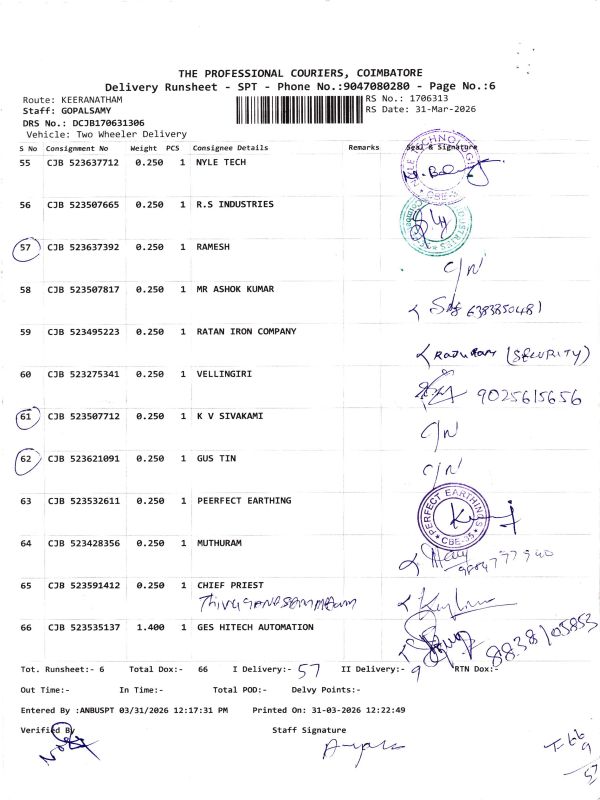 THE PROFESSIONAL COURIERS, COIMBATORE
Delivery Runsheet - SPT - Phone No.:9047080280 - Page No.:6
Route: KEERANATHAM RS No.: 1706313
Staff: GOPALSAMY RS Date: 31-Mar-2026
DRS No.: DCJB170631306
Vehicle: Two Wheeler Delivery
S No Consignment No Weight PCS Consignee Details Remarks Seal & Signature
55 CJB 523637712 0.250 1 NYLE TECH
56 CJB 523507665 0.250 1 R.S INDUSTRIES
57 CJB 523637392 0.250 1 RAMESH C/N
58 CJB 523507817 0.250 1 MR ASHOK KUMAR 6383850481
59 CJB 523495223 0.250 1 RATAN IRON COMPANY (SECURITY)
60 CJB 523275341 0.250 1 VELLINGIRI 9025615656
61 CJB 523507712 0.250 1 K V SIVAKAMI C/N
62 CJB 523621091 0.250 1 GUS TIN C/N
63 CJB 523532611 0.250 1 PEERFECT EARTHING PERFECT EARTHINGS CBE-35
64 CJB 523428356 0.250 1 MUTHURAM
65 CJB 523591412 0.250 1 CHIEF PRIEST
66 CJB 523535137 1.400 1 GES HITECH AUTOMATION 8838105853
Tot. Runsheet:- 6 Total Dox:- 66 I Delivery:- 57 II Delivery:- 9 RTN Dox:-
Out Time:- In Time:- Total POD:- Delvy Points:-
Entered By :ANBUSPT 03/31/2026 12:17:31 PM Printed On: 31-03-2026 12:22:49
Verified By Staff Signature
T-66
9
57